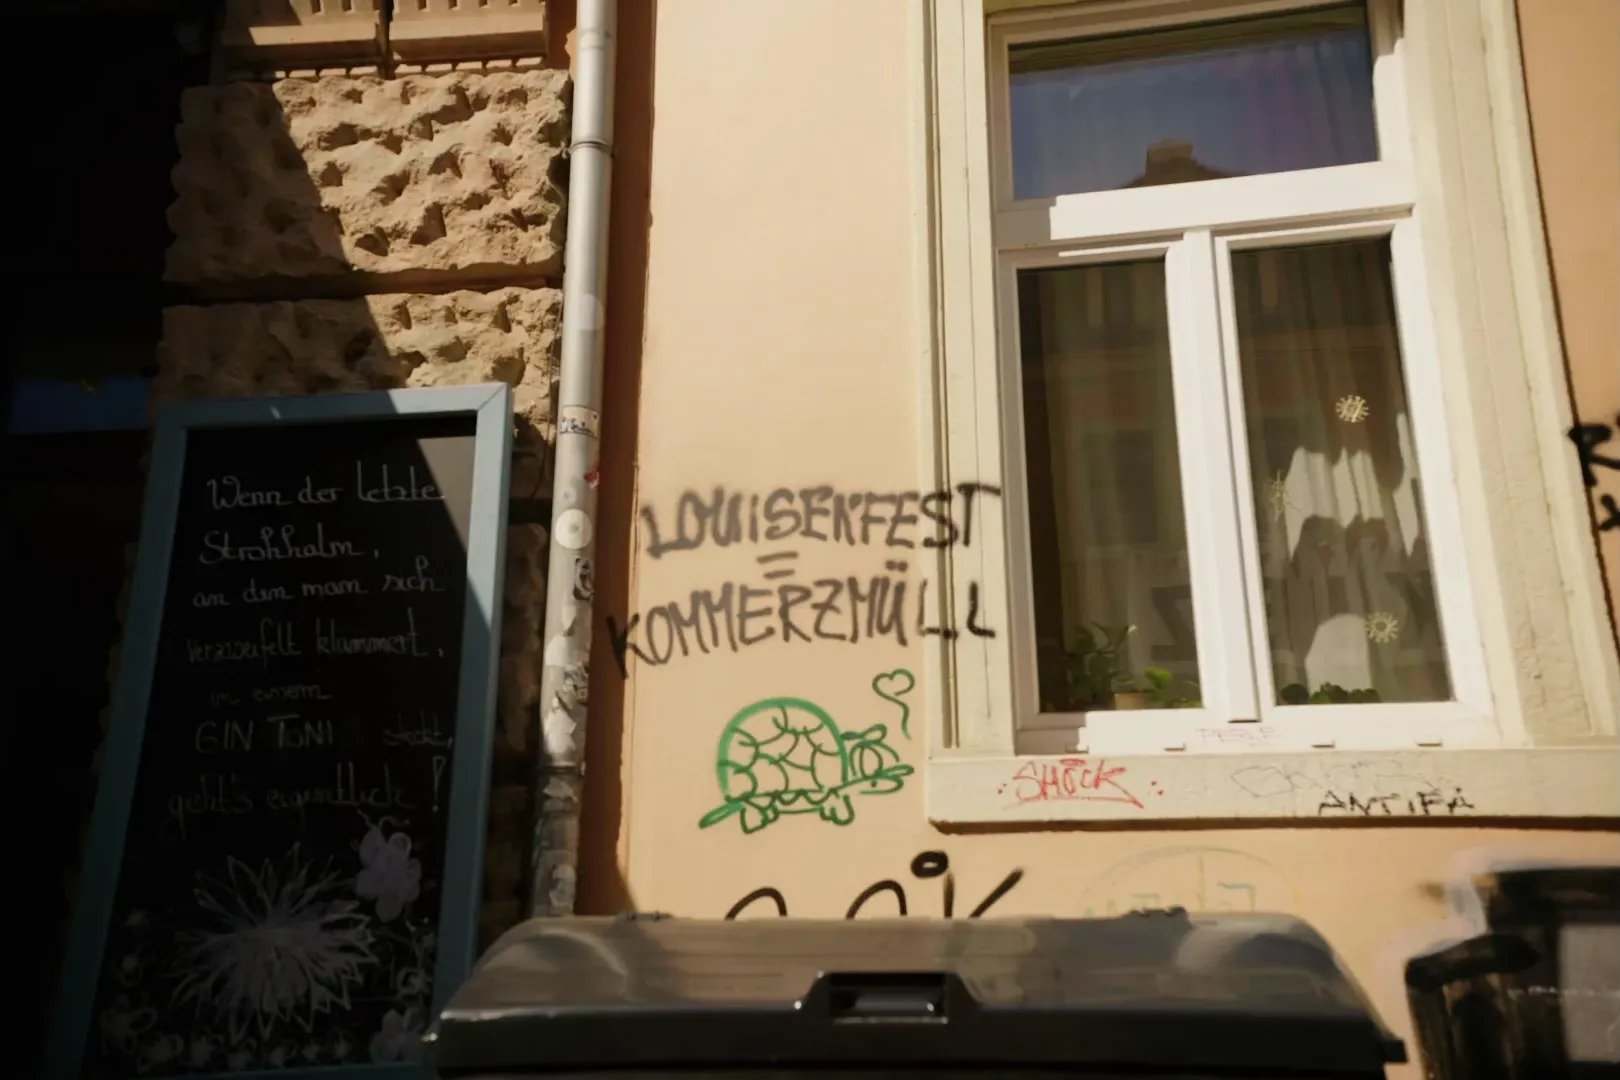 Wenn der letzte
Strohhalm,
an dem man sich
verzweifelt klammert,
in einem
GIN TONI steckt,
geht's eigentlich!
LOUISENFEST
=
KOMMERZMÜLL
PERLE
SHÖCK
ANTIFA